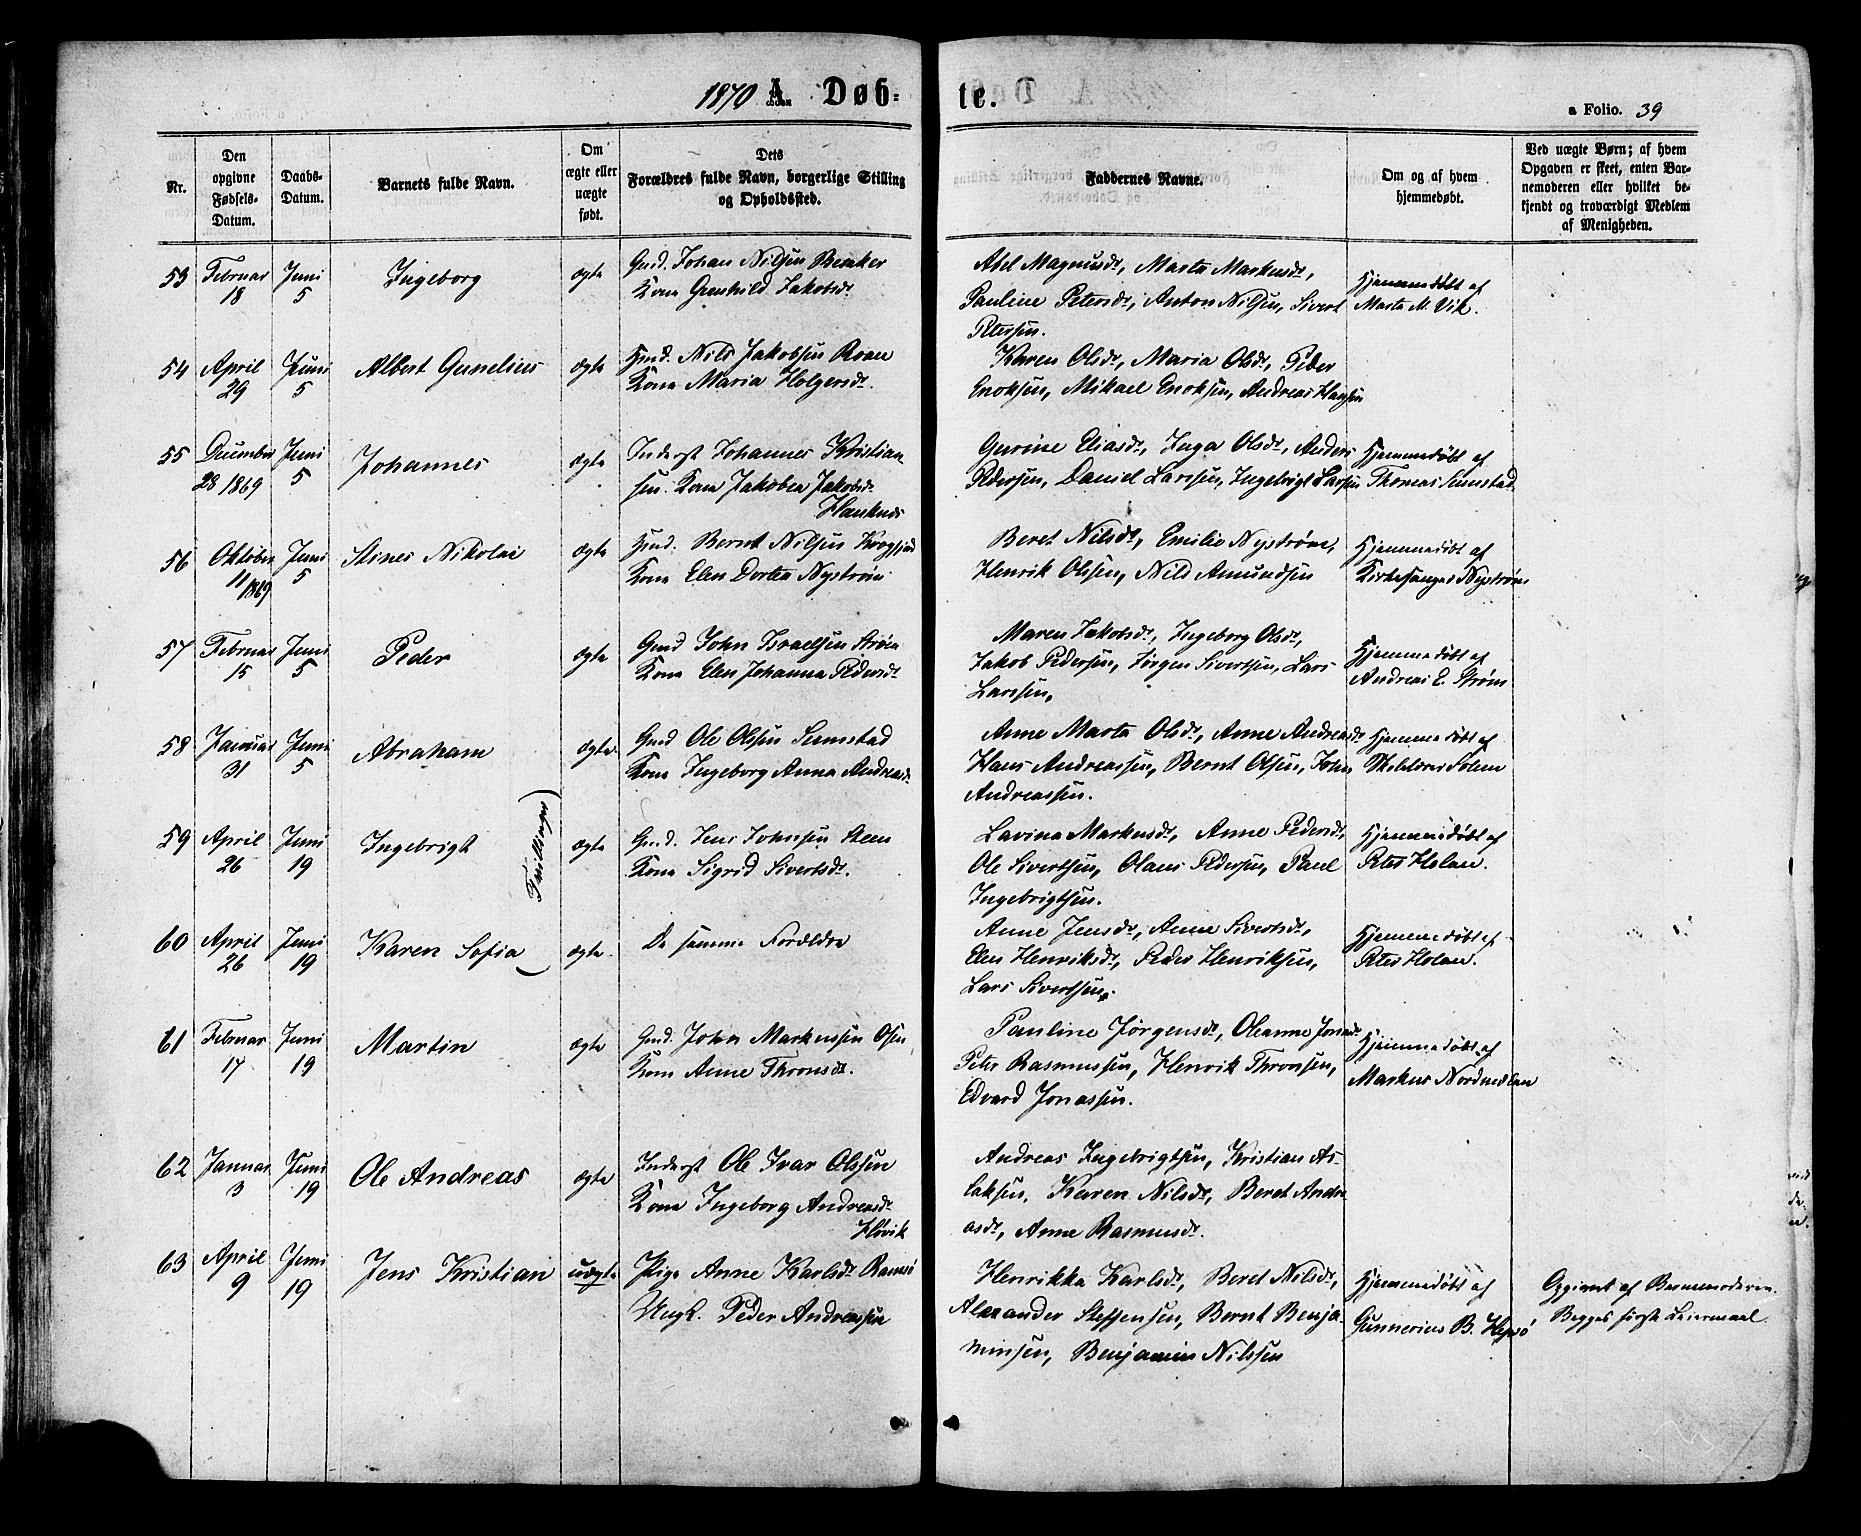 1870 A. Døb=
te.
a Folio. 39
Nr.
Den opgivne Fødsels-Datum.
Daabs-Datum.
Barnets fulde Navn.
Om ægte eller uægte født.
Dets Forældres fulde Navn, borgerlige Stilling og Opholdssted.
Faddernes Navne.
Om og af hvem hjemmedøbt.
Ved uægte Børn; af hvem Opgaven er skeet, enten Barnemoderen eller hvilket bekjendt og troværdigt Medlem af Menigheden.
53 Februar 18 Juni 5 Ingeborg ægte
Gmd. Johan Nilsen
Kone Gunhild Jakobsdr.
Abel Magnusdr, Marta Markusdr,
Pauline Petersdr, Anton Nilsen, Sivert
Petersen.
Hjemmedøbt af
Marta M. Vik.
54 April 29 Juni 5 Albert Gunelius ægte
Hmd. Nils Jakobsen Roan
Kone Maria Holgersdr.
Karen Olsdr, Maria Olsdr, Peder
Enoksen, Mikael Enoksen, Andreas Hansen
55 December 28 1869 Juni 5 Johannes ægte
Inderst Johannes Kristian-
sen. Kone Jakobea Jakobsdr.
Gurine Eliasdr, Inga Olsdr, Anders
Pedersen, Daniel Larssen, Ingebrigt Larsen
Hjemmedøbt af
Thomas Sumstad
56 Oktober 11 1869 Juni 5 Stines Nikolai ægte
Hmd. Bernt Nilsen
Kone Elen Dortea Nystrøm
Beret Nilsdr, Emilie Nystrøm,
Henrik Olssen, Nils Amundsen
Hjemmedøbt af
Kirkesanger Nystrøm
57 Februar 15 Juni 5 Peder ægte
Gmd John Israelsen Strøm
Kone Elen Johanna Pedersdr
Maren Jakobsdr, Ingeborg Olsdr,
Jakob Pedersen, Jørgen Sivertsen, Lars
Larssen,
Hjemmedøbt af
Andreas E. Strøm
58 Januar 31 Juni 5 Abraham ægte
Gmd Ole Olssen Sumstad
Kone Ingeborg Anna Andreasdr.
Anne Marta Olsdr, Anne Andreasdr
Hans Andreassen, Bernt Olsen, John
Andreassen.
Hjemmedøbt af
Skolelærer Solem
(Tvillinger)
59 April 26 Juni 19 Ingebrigt ægte
Gmd. Jens Johnsen Steen
Kone Sigrid Sivertsdr.
Lavina Markusdr, Anne Pedersdr,
Ole Sivertsen, Olaus Pedersen, Paul
Ingebrigtsen.
Hjemmedøbt af
Peter Holan.
60 April 26 Juni 19 Karen Sofia ægte.
De samme Forældre
Anne Jensdr, Anne Sivertsdr,
Elen Henriksdr, Peder Henriksen,
Lars Sivertsen.
Hjemmedøbt af
Peter Holan.
61 Februar 17 Juni 19 Martin ægte
Gmd. John Markussen Osen
Kone Anne Thronsdr.
Pauline Jørgensdr, Oleanne Jonasdr
Peter Rasmussen, Henrik Thronsen,
Edvard Jonassen.
Hjemmedøbt af
Markus Nordmelan
62 Januar 3 Juni 19 Ole Andreas ægte
Inderst Ole Ivar Olssen
Kone Ingeborg Andreasdr.
Høvik
Andreas Ingebrigtsen, Kristian As-
laksen, Karen Nilsdr, Beret Andre
asdr, Anne Rasmusdr.
63 April 9 Juni 19 Jens Kristian uægte
Pige Anne Karlsdr Ramsø
Ungk. Peder Andreassen
Henrikka Karlsdr, Beret Nilsdr,
Alexander Steffensen, Bernt Benja
minsen, Benjamin Nilssen
Hjemmedøbt af
Gunnerius B. Hepsø
Opgivet af Barnemoderen.
Begges første Leiermaal.